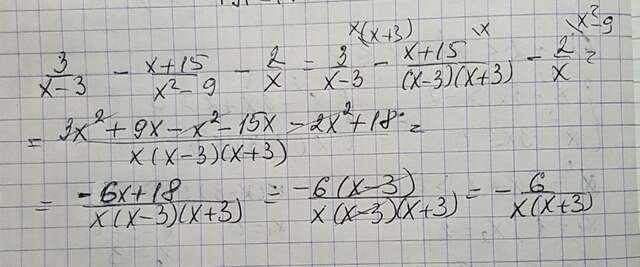 x(x+3) x x²-9
3/(x-3) - (x+15)/(x²-9) - 2/x = 3/(x-3) - (x+15)/((x-3)(x+3)) - 2/x =
= (3x²+9x-x²-15x-2x²+18)/(x(x-3)(x+3)) =
= (-6x+18)/(x(x-3)(x+3)) = (-6(x-3))/(x(x-3)(x+3)) = - 6/(x(x+3))